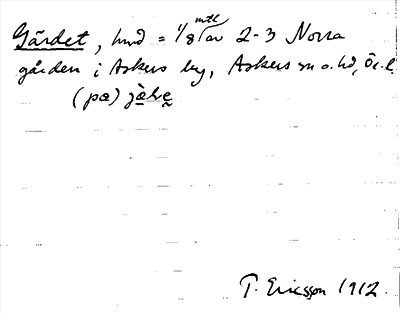 Gärdet, hmd = 1/8 mtl av 2-3 Norra
gården i Askers by, Askers sn o. hd, Ör. l.
(pæ)
T. Ericsson 1912.